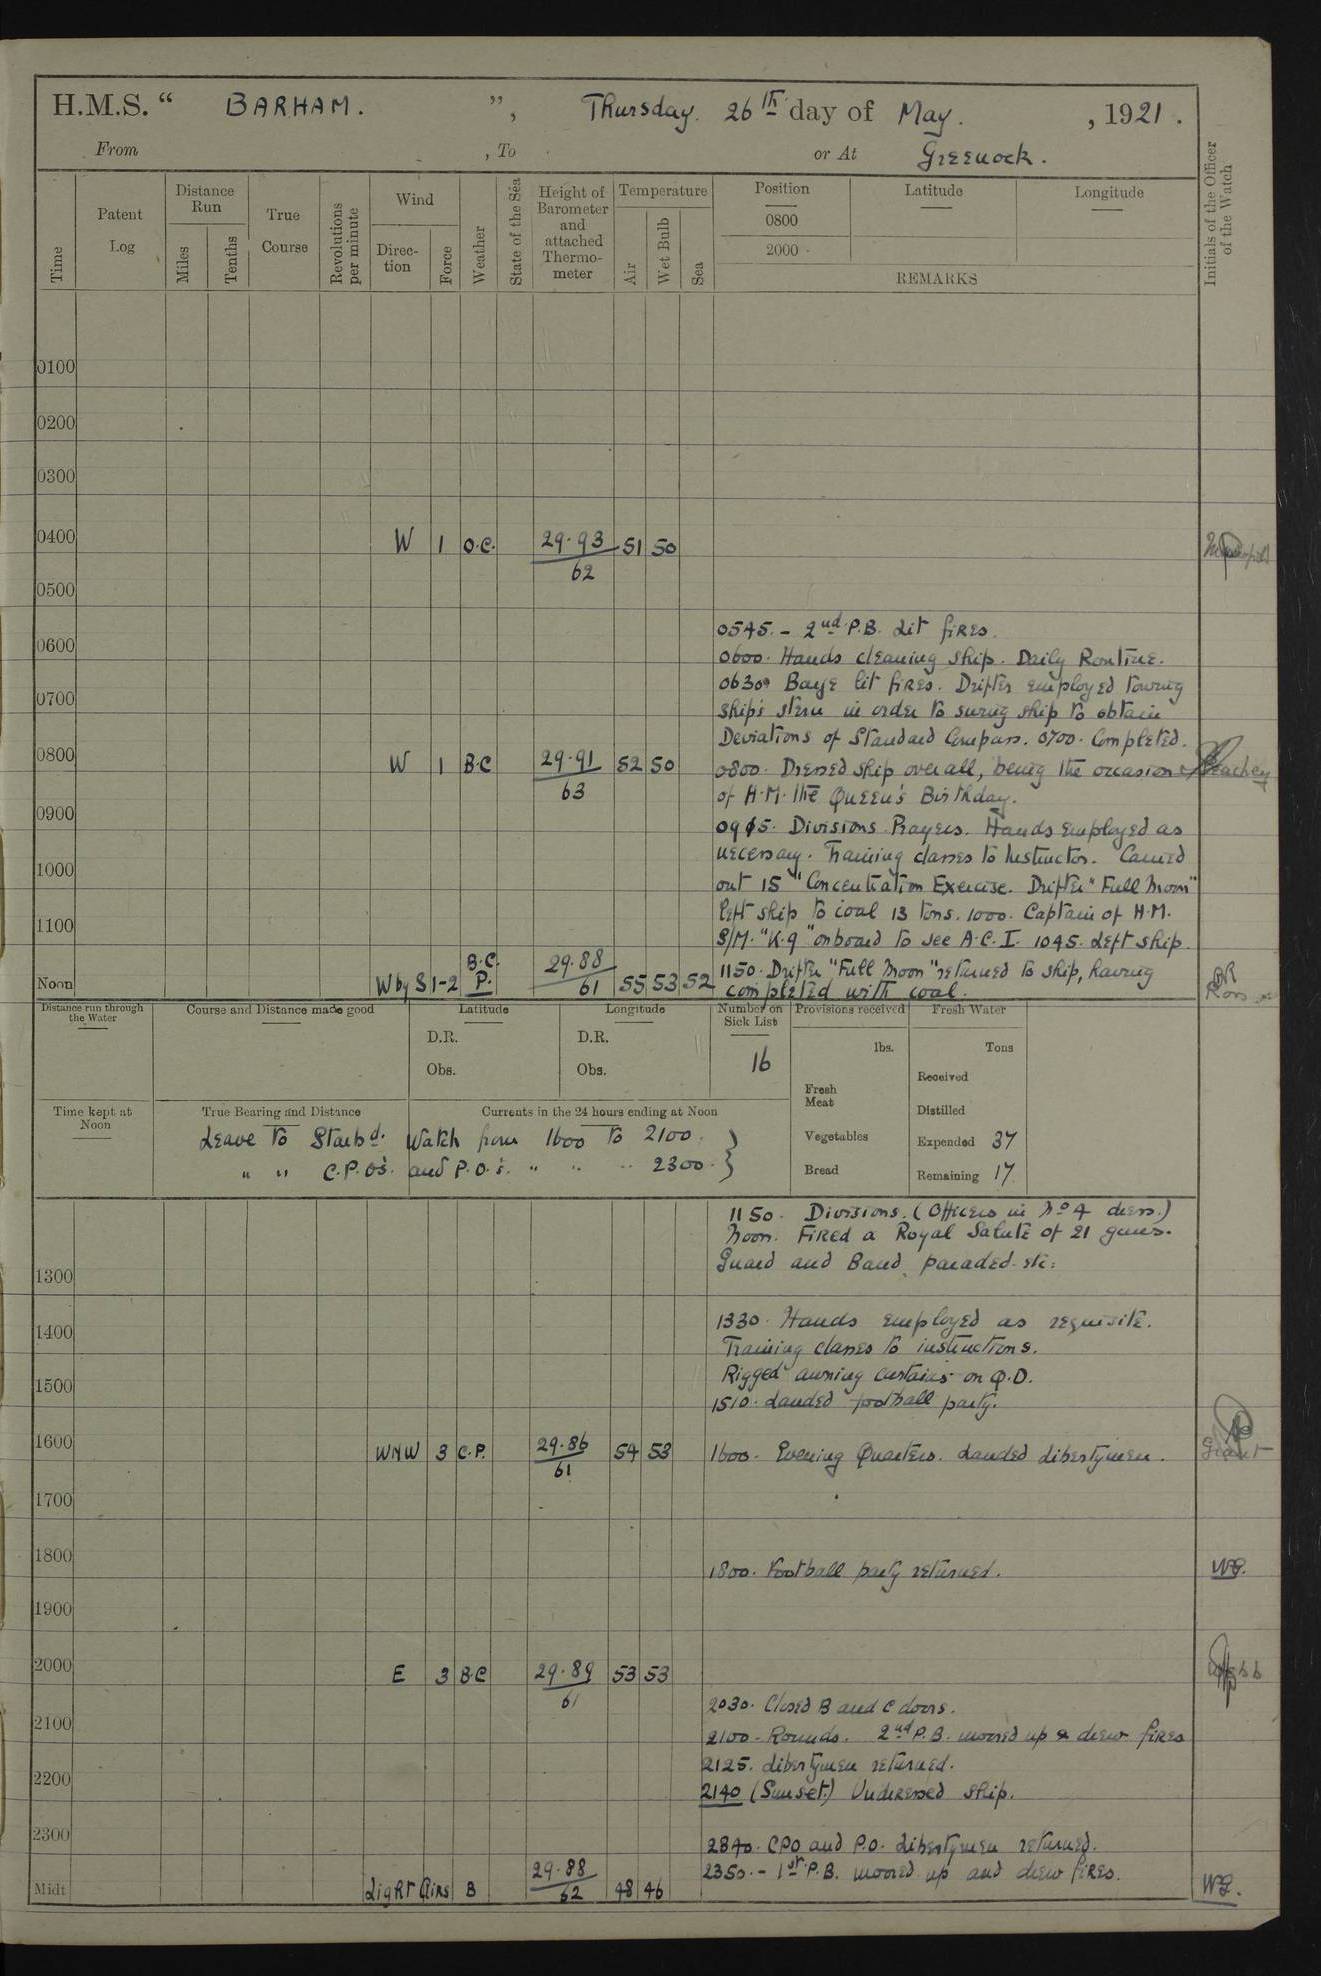 H.M.S. " BARHAM. ", Thursday. 26th day of May. , 1921.
From , To or At Greenock.
Time
Patent Log
Distance Run
Miles
Tenths
True Course
Revolutions per minute
Wind
Direction
Force
Weather
State of the Sea
Height of Barometer and attached Thermometer
Temperature
Air
Wet Bulb
Sea
Position
Latitude
Longitude
0800
2000
REMARKS
Initials of the Officer of the Watch
0100
0200
0300
0400 W 1 O.C. 29.93 51 50
62
0500
0545. - 2nd P.B. Lit fires.
0600
0600. Hands cleaning ship. Daily Routine.
0630 Barge lit fires. Drifter employed towing
0700
ship's stern in order to swing ship to obtain
Deviations of Standard Compass. 0700. Completed.
0800 W 1 B.C 29.91 52 50
63
0800. Dressed ship overall, being the occasion
of H.M. the Queen's Birthday.
0900
0915. Divisions. Prayers. Hands employed as
necessary. Training classes to Instructor. Carried
1000
out 15" Concentration Exercise. Drifter "Full Moon"
left ship to coal 13 tons. 1000. Captain of H.M.
1100
S/M. "K.9" onboard to see A.C.I. 1045. Left ship.
Noon W by S 1-2 B.C. P. 29.88 55 53 52
61
1150. Drifter "Full Moon" returned to ship, having
completed with coal.
Distance run through the Water
Course and Distance made good
Latitude
D.R.
Obs.
Longitude
D.R.
Obs.
Number on Sick List
16
Provisions received
lbs.
Fresh Meat
Vegetables
Bread
Fresh Water
Tons
Received
Distilled
Expended 37
Remaining 17
Time kept at Noon
True Bearing and Distance
Currents in the 24 hours ending at Noon
Leave to Starbd. Watch from 1600 to 2100.
" " C.P.O's. and P.O.'s. " " " 2300. }
1150. Divisions. (Officers in No 4 dress.)
Noon. Fired a Royal Salute of 21 guns.
Guard and Band paraded. etc:
1300
1330. Hands employed as requisite.
1400
Training classes to instructions.
Rigged awning curtains on Q.D.
1500
1510. Landed football party.
1600 WNW 3 C.P. 29.86 54 53
61
1600. Evening Quarters. Landed libertymen. Grant
1700
1800
1800. Football party returned. WG.
1900
2000 E 3 B.C 29.89 53 53
61
2030. Closed B and C doors.
2100
2100. Rounds. 2nd P.B. moored up & drew fires
2125. Libertymen returned.
2200
2140 (Sunset.) Undressed ship.
2300
2340. CPO and P.O. Libertymen returned.
2350. - 1st P.B. moored up and drew fires.
Midt Light Airs B 29.88 48 46 WG.
62